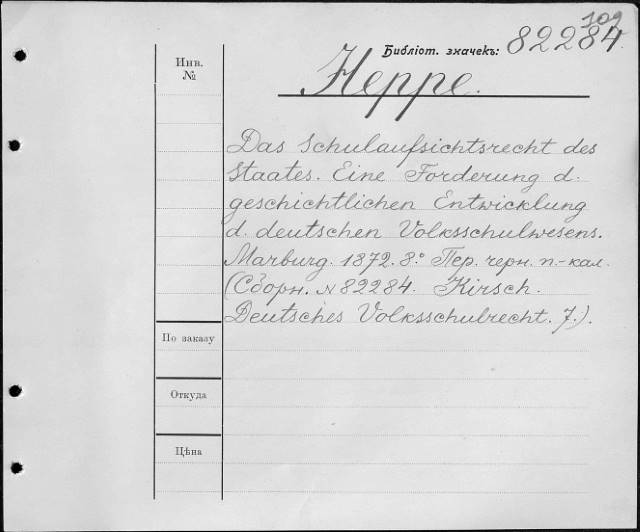 109
Библіот. значекъ: 82284.
Инв.
№
Heppe.
Das Schulaufsichtsrecht des
Staates. Eine Forderung d.
geschichtlichen Entwicklung
d. deutschen Volksschulwesens.
Marburg. 1872. 8.° Пер. черн. п.-кал.
(Сборн. № 82284. Kirsch.
Deutsches Volksschulrecht. 7.).
По заказу
Откуда
Цѣна